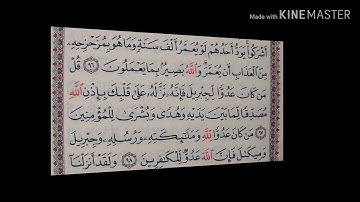 Made with KINEMASTER
أَشْرَكُوا۟ يَوَدُّ أَحَدُهُمْ لَوْ يُعَمَّرُ أَلْفَ سَنَةٍ وَمَا هُوَ بِمُزَحْزِحِهِۦ
مِنَ ٱلْعَذَابِ أَن يُعَمَّرَ وَٱللَّهُ بَصِيرٌۢ بِمَا يَعْمَلُونَ ٩٦ قُلْ
مَن كَانَ عَدُوًّا لِّجِبْرِيلَ فَإِنَّهُۥ نَزَّلَهُۥ عَلَىٰ قَلْبِكَ بِإِذْنِ ٱللَّهِ
مُصَدِّقًا لِّمَا بَيْنَ يَدَيْهِ وَهُدًى وَبُشْرَىٰ لِلْمُؤْمِنِينَ
٩٧ مَن كَانَ عَدُوًّا لِّلَّهِ وَمَلَـٰٓئِكَتِهِۦ وَرُسُلِهِۦ وَجِبْرِيلَ
وَمِيكَىٰلَ فَإِنَّ ٱللَّهَ عَدُوٌّ لِّلْكَـٰفِرِينَ ٩٨ وَلَقَدْ أَنزَلْنَآ